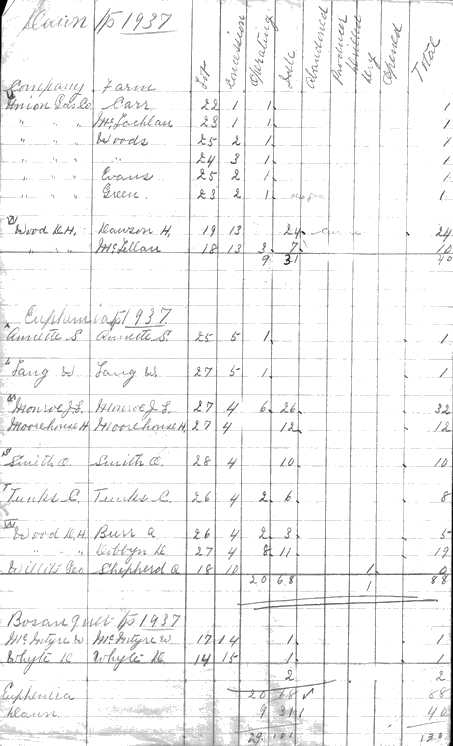 Dawn Tp 1937
Lot Concession Operating Idle Abandoned Producer Drilled Dry Opened Total
Company Farm
Union Gas Co Carr 22 1 1 1
" " " McLachlan 23 1 1 1
" " " Woods 25 2 1 1
" " " " 24 3 1 1
" " " Evans 25 2 1 1
" " " Green 23 2 1 1
Wood K.H. Dawson H. 19 13 24 24
" " " McLellan 18 13 3 7 10
9 31 40
Euphemia Tp 1937
Annette S Annette S. 25 5 1 1
Lang W Lang W. 27 5 1 1
Monroe J.L. Monroe J L 27 4 6 26 32
Moorehouse H. Moorehouse H. 27 4 12 12
Smith O. Smith O. 28 4 10 10
Tunks C. Tunks C. 26 4 2 6 8
Wood K.H. Burr A 26 4 2 3 5
" " " 27 4 8 11 19
Willits Geo Shepherd A 18 10 1 0
20 68 1 88
Bosanquet Tp 1937
McIntyre W McIntyre W. 17 14 1 1
Whyte K Whyte K. 14 15 1 1
2 2
Euphemia 20 68 ✓ 88
Dawn 9 31 40
29 101 130